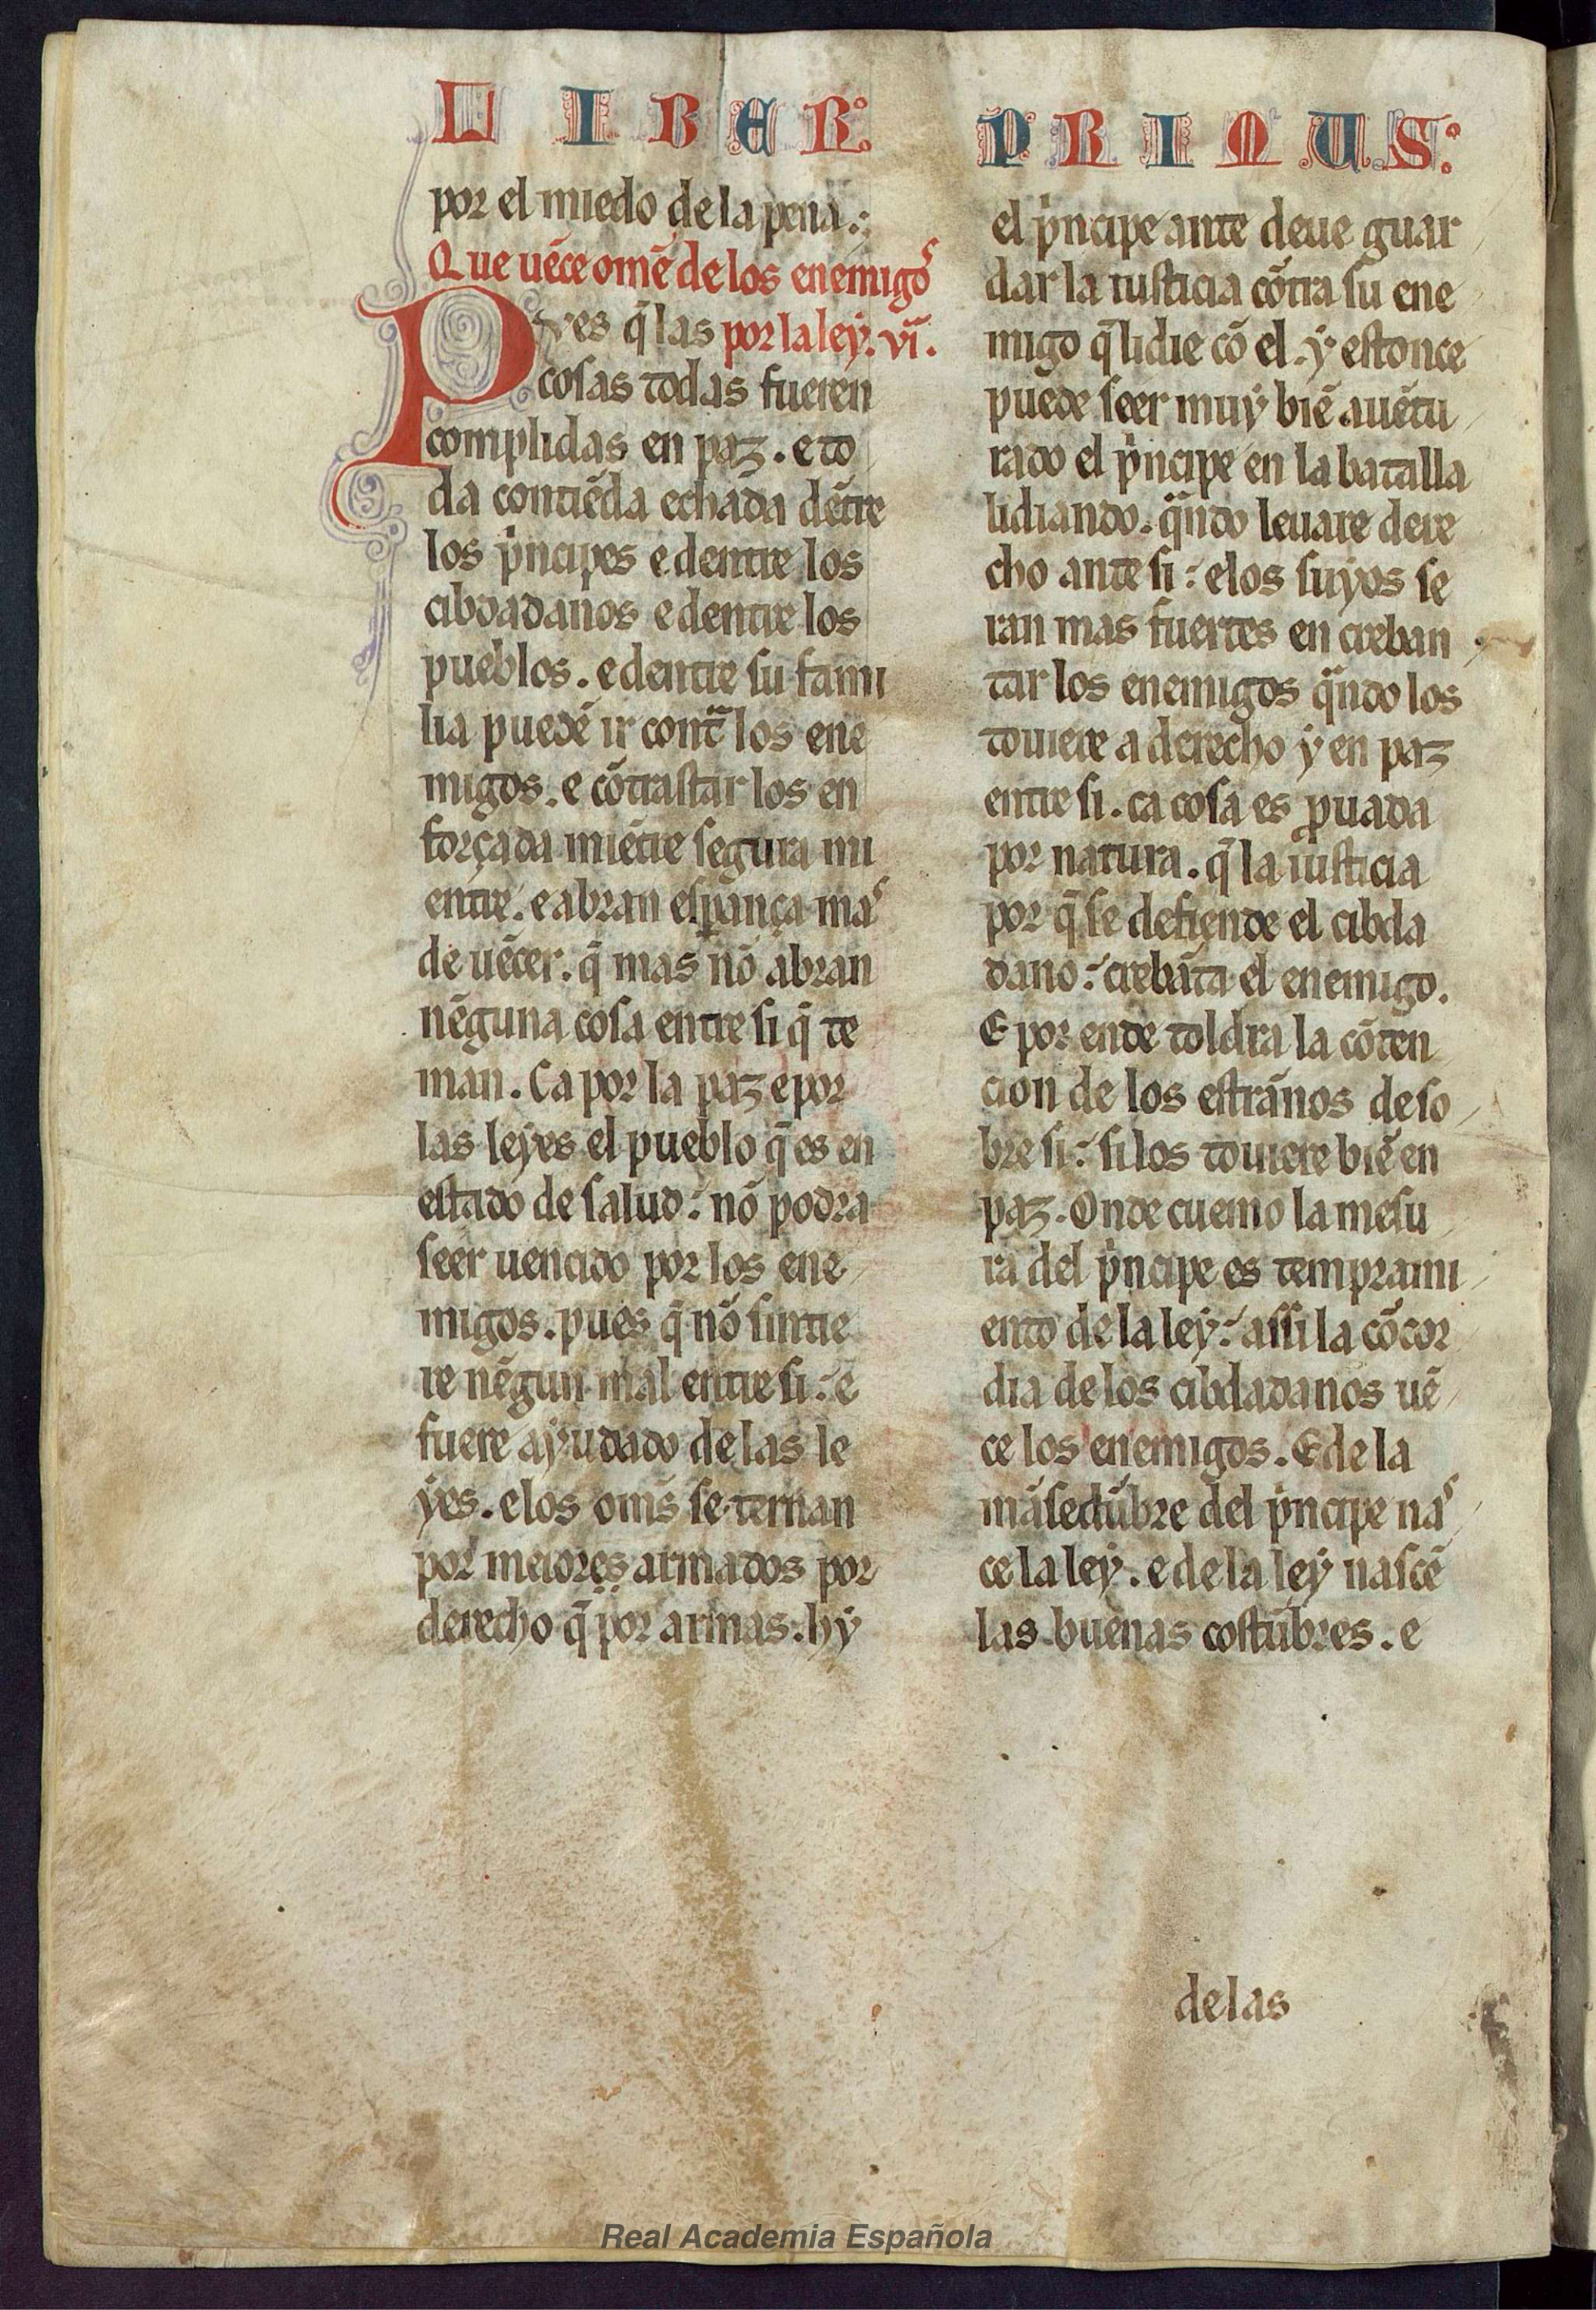 LIBER PRIMUS:
por el miedo de la pena.:
Que uẽce omẽ de los enemigos
Pves q̃ las por la ley. vi.
cosas todas fueren
complidas en paz. e to
da contiẽda echada dẽtre
los pͥncipes e dentre los
cibdadanos e dentre los
pueblos. e dentre su fami
lia puedẽ ir contᷓ los ene
migos. e cõtrastar los en
forçada miẽtre segura mi
entre. e abran esꝑança mas
de uẽcer. q̃ mas nõ abran
nẽguna cosa entre si q̃ te
man. Ca por la paz e por
las leyes el pueblo q̃ es en
estado de salud: nõ podra
seer uencido por los ene
migos. pues q̃ nõ sintie
re nẽgun mal entre si: e
fuere ayudado de las le
yes. e los om̃s se ternan
por meiores armados por
derecho q̃ por armas. hy
el pͥncipe ante deue guar
dar la iusticia cõtra su ene
migo q̃ lidie cõ el. y estonce
puede seer muy biẽ auẽtu
rado el pͥncipe en la batalla
lidiando. qᷓndo leuare dere
cho ante si: e los suyos se
ran mas fuertes en creban
tar los enemigos qᷓndo los
touiere a derecho y en paz
entre si. ca cosa es ꝓuada
por natura. q̃ la iusticia
por q̃ se defiende el cibda
dano: crebãta el enemigo.
E por ende toldra la cõten
cion de los estrãnos de so
bre si: si los touiere biẽ en
paz. Onde cuemo la mesu
ra del pͥncipe es temprami
ento de la ley: assi la cõcor
dia de los cibdadanos uẽ
ce los enemigos. E de la
mãsedũbre del pͥncipe nas
ce la ley. e de la ley nascẽ
las buenas costũbres. e
delas
Real Academia Española